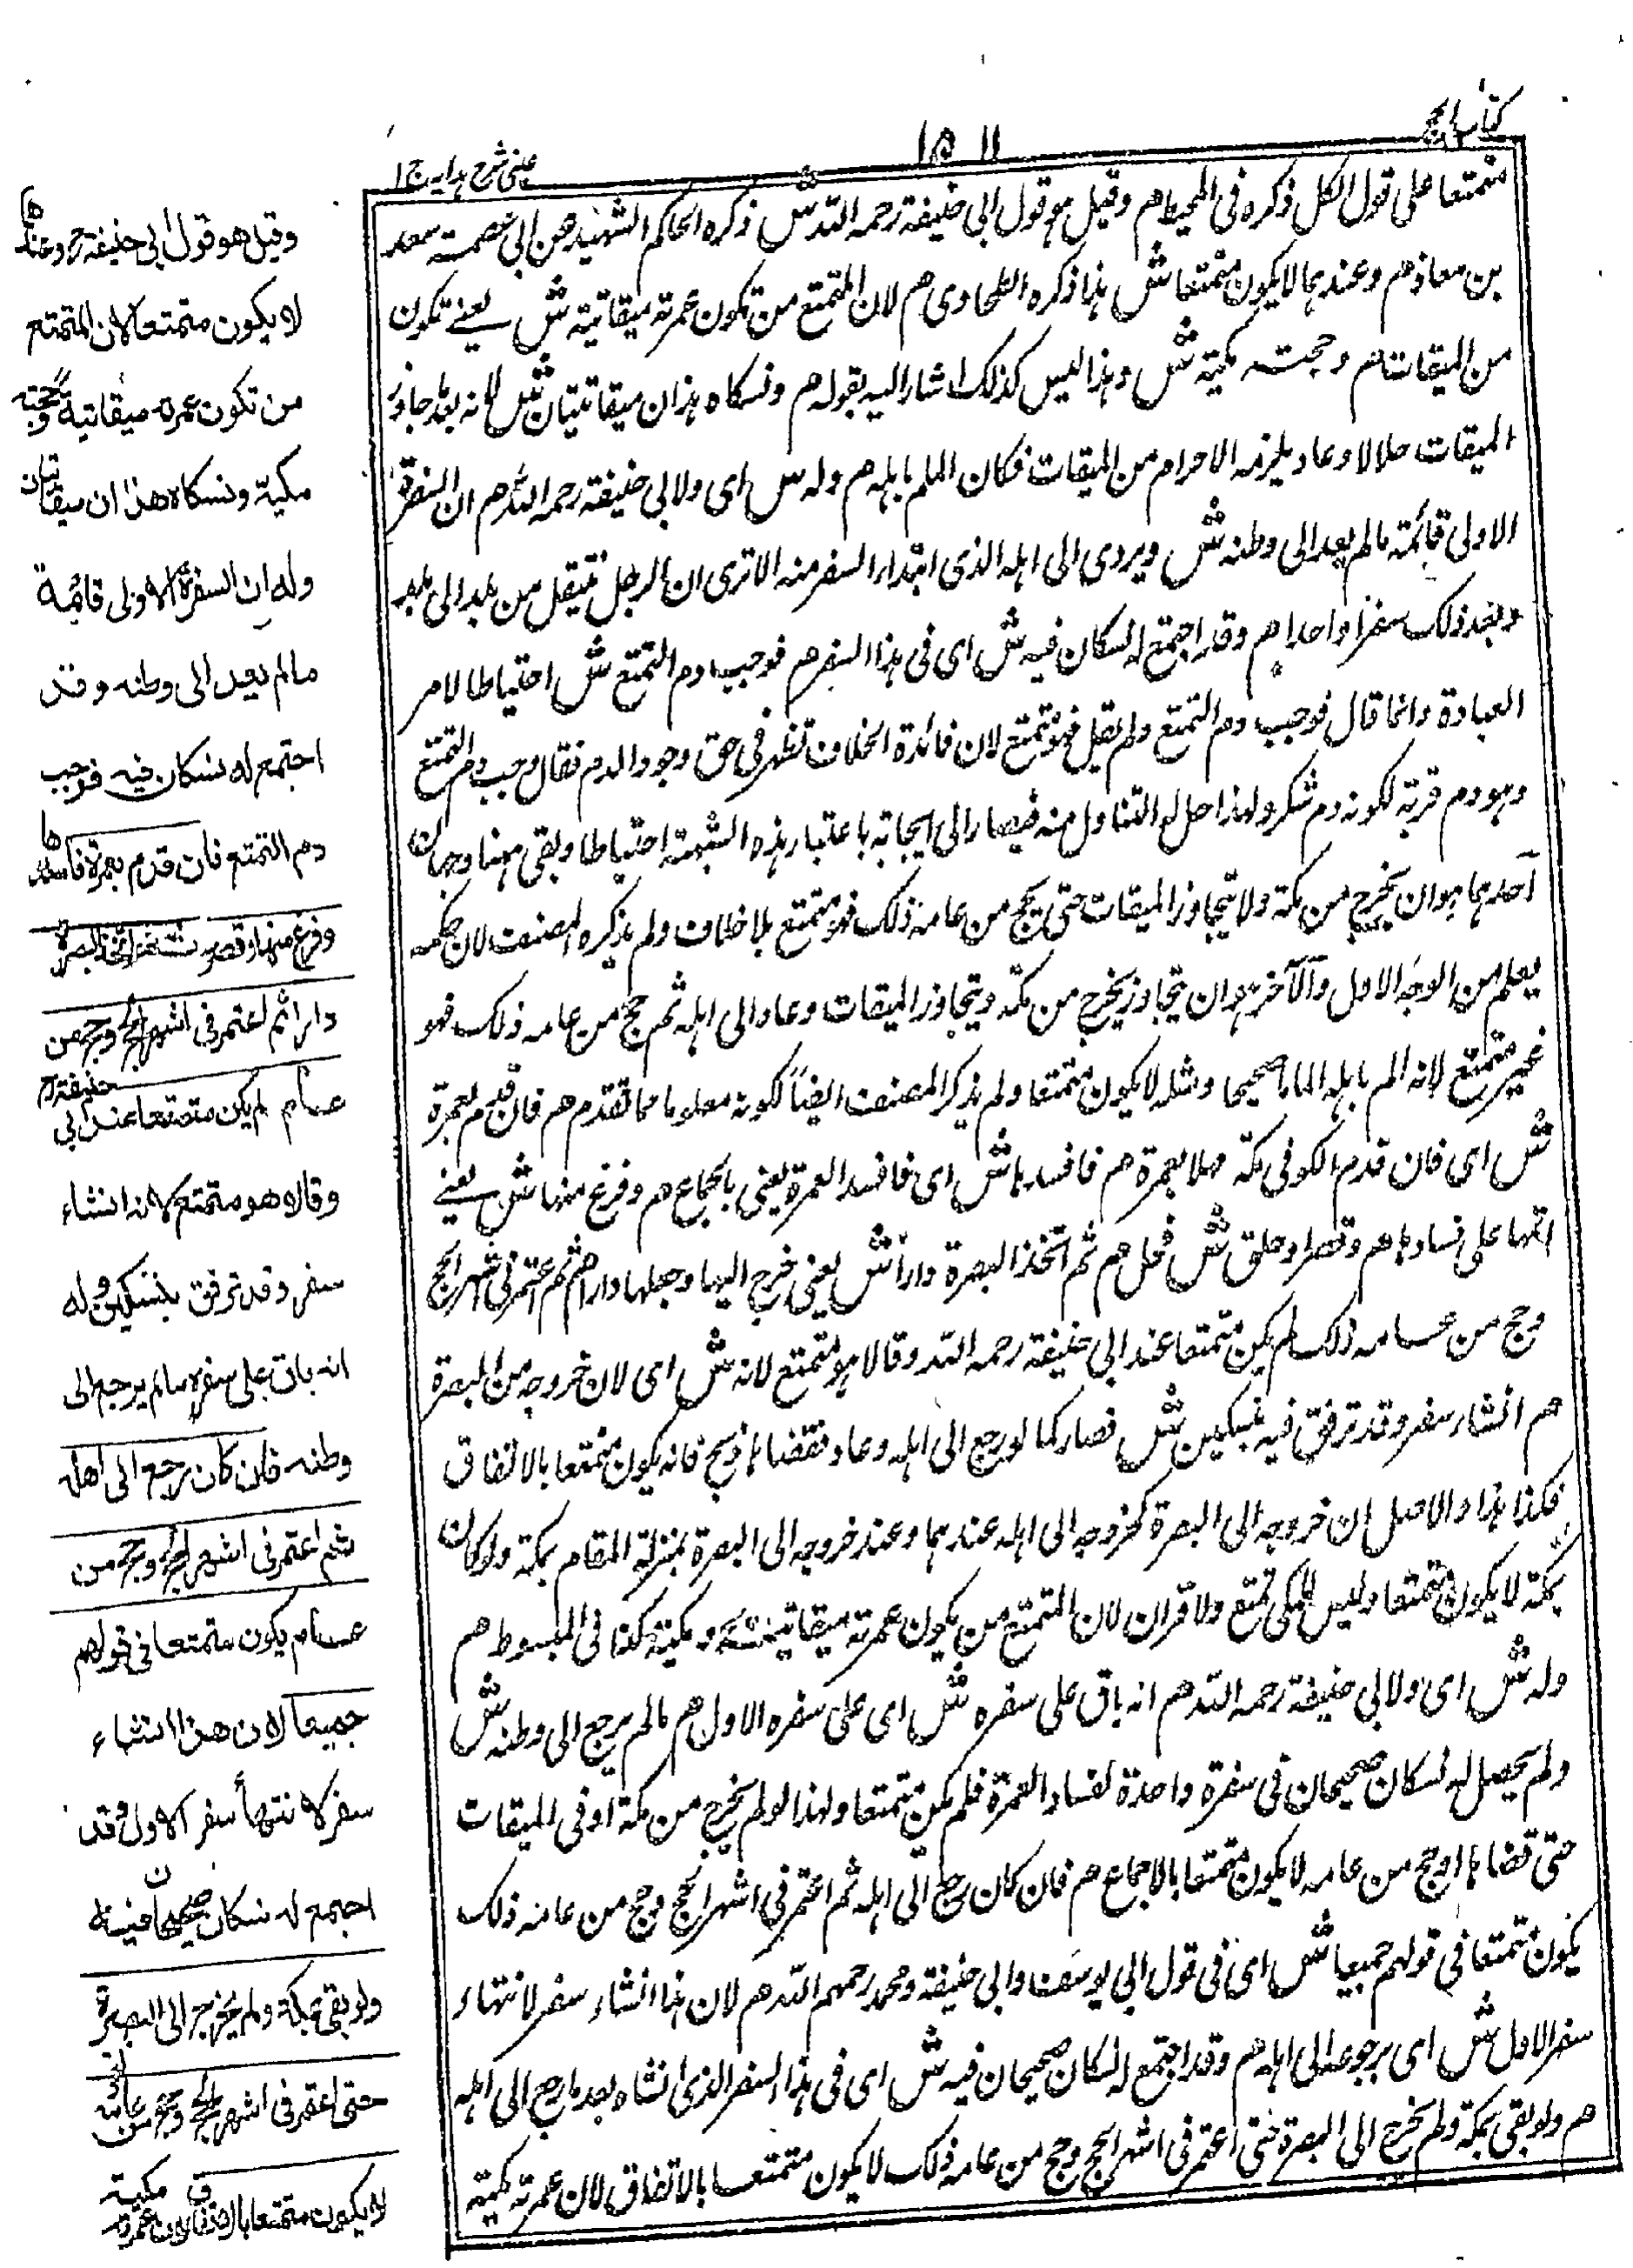 كتاب الحج
١٥١١
عينى شرح هدايه ج ١
متمتعا على قول الكل ذكره فى المحيط هم وقيل هو قول ابى حنيفة رحمه الله ش ذكره الحاكم الشهيد عن ابى عصمة سعد
بن معاذ هم وعندهما لا يكون متمتعا ش هذا ذكره الطحاوى هم لان المتمتع من تكون عمرته ميقاتية ش يعنے تكون
من الميقات هم وحجته مكية ش وهذا ليس كذلك اشار اليه بقوله هم ونسكاه هذان ميقاتيتان ش لانه بعد ما جاوز
الميقات حلالا وعاد يلزمه الاحرام من الميقات فكان الملم باهله هم وله ش اى ولابى حنيفة رحمه الله هم ان السفرة
الاولى قائمة ما لم يعد الى وطنه ش ويروى الى اهله الذى ابتداء السفر منه الا ترى ان الرجل ينتقل من بلد الى بلد
ويعد ذلك سفرا واحدا هم وقد اجتمع له نسكان فيه ش اى فى هذا السفر هم فوجب دم التمتع ش احتياطا لامر
العبادة وانما قال فوجب دم التمتع ولم يقل فهو متمتع لان فائدة الخلاف تظهر فى حق وجود الدم فقال وجب دم التمتع
وهو دم قربة لكونه دم شكر ولهذا حل له التناول منه فيصار الى ايجابه باعتبار هذه الشبهة احتياطا وبقى ههنا وجهان
احدهما هو ان يخرج من مكة ولا يتجاوز الميقات حتى يحج من عامه ذلك فهو متمتع بلا خلاف ولم يذكره المصنف لان حكمه
يعلم من الوجه الاول والآخر هو ان يتجاوز يخرج من مكة ويتجاوز الميقات وعاد الى اهله ثم حج من عامه ذلك فهو
غير متمتع لانه الم باهله الماما صحيحا ومثله لا يكون متمتعا ولم يذكر المصنف ايضاً لكونه معلوما مما تقدم هم فان قدم بعمرة
ش اى فان قدم الكوفى مكة مهلا بعمرة هم فافسدها ش اى فافسد العمرة يعنى بالجماع هم وفرغ منها ش يعنے
اتمها على فسادها هم وقصر او حلق ش فحل هم ثم اتخذ البصرة داراً ش يعنى خرج اليها وجعلها دارا هم ثم اعتمر فى اشهر الحج
وحج من عامه ذلك لم يكن متمتعا عند ابى حنيفة رحمه الله وقالا هو متمتع لانه ش اى لان خروجه من البصرة
هم انشاء سفر وقد ترفق فيه بنسكين ش فصار كما لو رجع الى اهله وعاد فقضاها وحج فانه يكون متمتعا بالاتفاق
فكذا هذا والاصل ان خروجه الى البصرة كخروجه الى اهله عندهما وعنده خروجه الى البصرة بمنزلة المقام بمكة ولو كان
بمكة لا يكون متمتعا وليس للمكى تمتع ولا قران لان المتمتع من يكون عمرته ميقاتية وحجته مكية كذا فى المبسوط هم
وله ش اى ولابى حنيفة رحمه الله هم انه باق على سفره ش اى على سفره الاول هم ما لم يرجع الى وطنه ش
ولم يحصل له نسكان صحيحان فى سفرة واحدة لفساد العمرة فلم يكن متمتعا ولهذا لو لم يخرج من مكة او فى الميقات
حتى قضاها وحج من عامه لا يكون متمتعا بالاجماع هم فان كان رجع الى اهله ثم اعتمر فى اشهر الحج وحج من عامه ذلك
يكون متمتعا فى قولهم جميعا ش اى فى قول ابى يوسف وابى حنيفة ومحمد رحمهم الله هم لان هذا انشاء سفر لانتهاء
سفر الاول ش اى برجوعه الى اهله هم وقد اجتمع له نسكان صحيحان فيه ش اى فى هذا السفر الذى انشاه بعد ما رجع الى اهله
هم ولو بقى بمكة ولم يخرج الى البصرة حتى اعتمر فى اشهر الحج وحج من عامه ذلك لا يكون متمتعا بالاتفاق لان عمرته مكية
وقيل هو قول ابى حنيفة رح وعندهما
لا يكون متمتعا لان المتمتع
من تكون عمرته ميقاتية وحجته
مكية ونسكاه هذان ميقاتيتان
وله ان السفرة الاولى قائمة
مالم يعد الى وطنه وقد
اجتمع له نسكان فيه فوجب
دم التمتع فان قدم بعمرة فافسدها
وفرغ منها وقصر ثم اتخذ البصرة
دارا ثم اعتمر فى اشهر الحج وحج من
عامه لم يكن متمتعا عند ابى حنيفة رح
وقالا هو متمتع لانه انشاء
سفر وقد ترفق بنسكين وله
انه باق على سفره مالم يرجع الى
وطنه فان كان رجع الى اهله
ثم اعتمر فى اشهر الحج وحج من
عامه يكون متمتعا فى قولهم
جميعا لان هذا انشاء
سفر لانتهاء سفر الاول وقد
اجتمع له نسكان صحيحان فيه
ولو بقى بمكة ولم يخرج الى البصرة
حتى اعتمر فى اشهر الحج وحج من عامه
لا يكون متمتعا بالاتفاق لان عمرته مكية